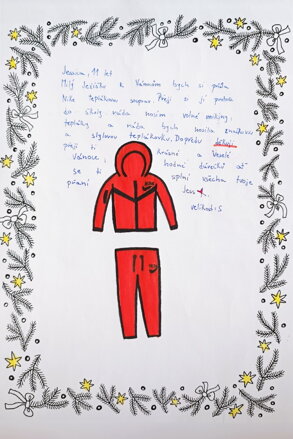 Jessica, 11 let
Milý Ježíšku k Vánocům bych si přála
Nike teplákovou soupravu. Přeji si jí protože
do školy ráda nosím volné mikiny,
tepláky a ráda bych nosila značkovou
a stylovou teplákovku. Dopředu děkuji
přeji ti krásné a Veselé
Vánoce, hodně dárečků ať
se ti splní všechna tvoje
přání Jess
velikost: S